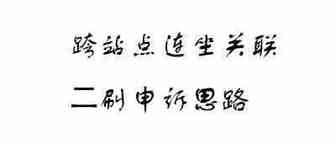 跨站点连坐关联
二刷申诉思路